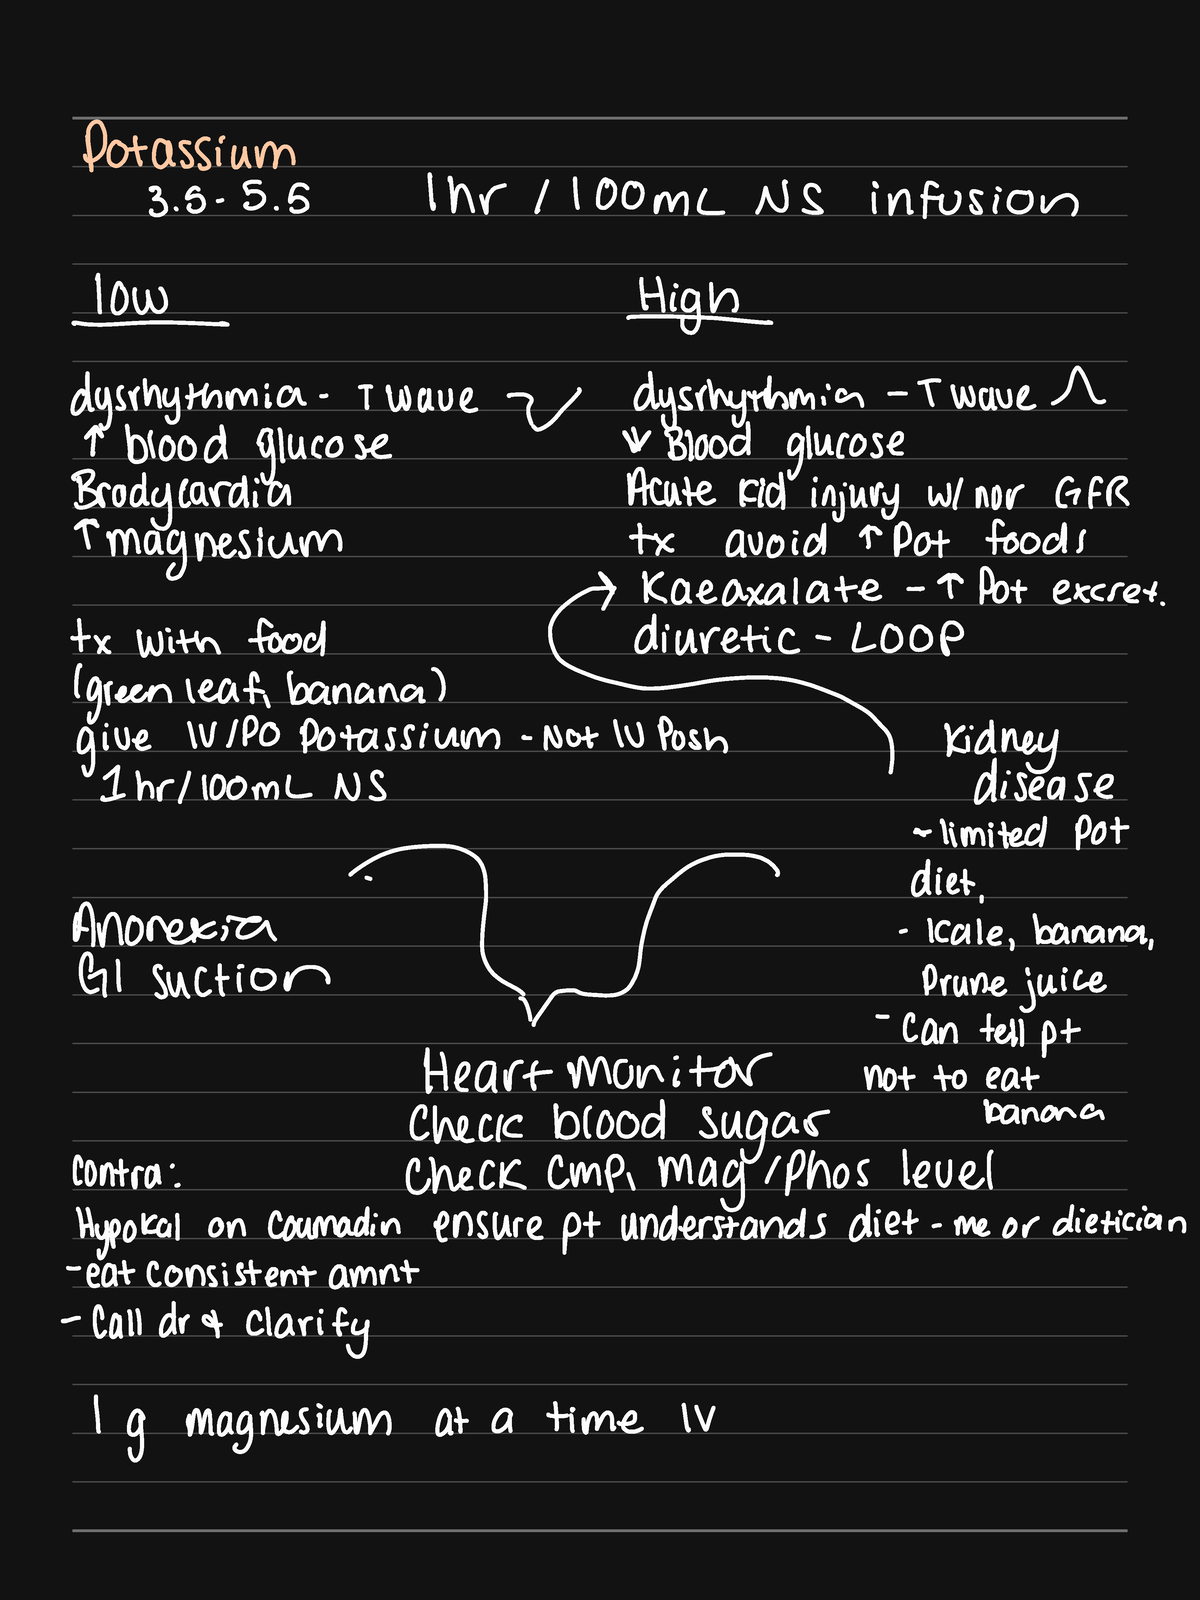 Potassium
3.5 - 5.5 1hr / 100mL NS infusion
low
dysrhythmia - T wave
↑ blood glucose
Bradycardia
↑ magnesium
tx with food
(green leaf, banana)
give IV/PO Potassium - Not IV Posh
1 hr/100mL NS
Anorexia
GI suction
High
dysrhythmia - T wave
↓ Blood glucose
Acute Kid injury w/ nor GFR
tx avoid ↑ Pot foods
→ Kaeaxalate - ↑ Pot excret.
diuretic - LOOP
Kidney
disease
~ limited Pot
diet.
- Kale, banana,
Prune juice
- Can tell pt
not to eat
banana
Heart monitor
Check blood sugar
Check Cmp, mag/Phos level
Contra:
Hypokal on Coumadin ensure pt understands diet - me or dietician
- eat consistent amnt
- Call dr & clarify
1 g magnesium at a time IV